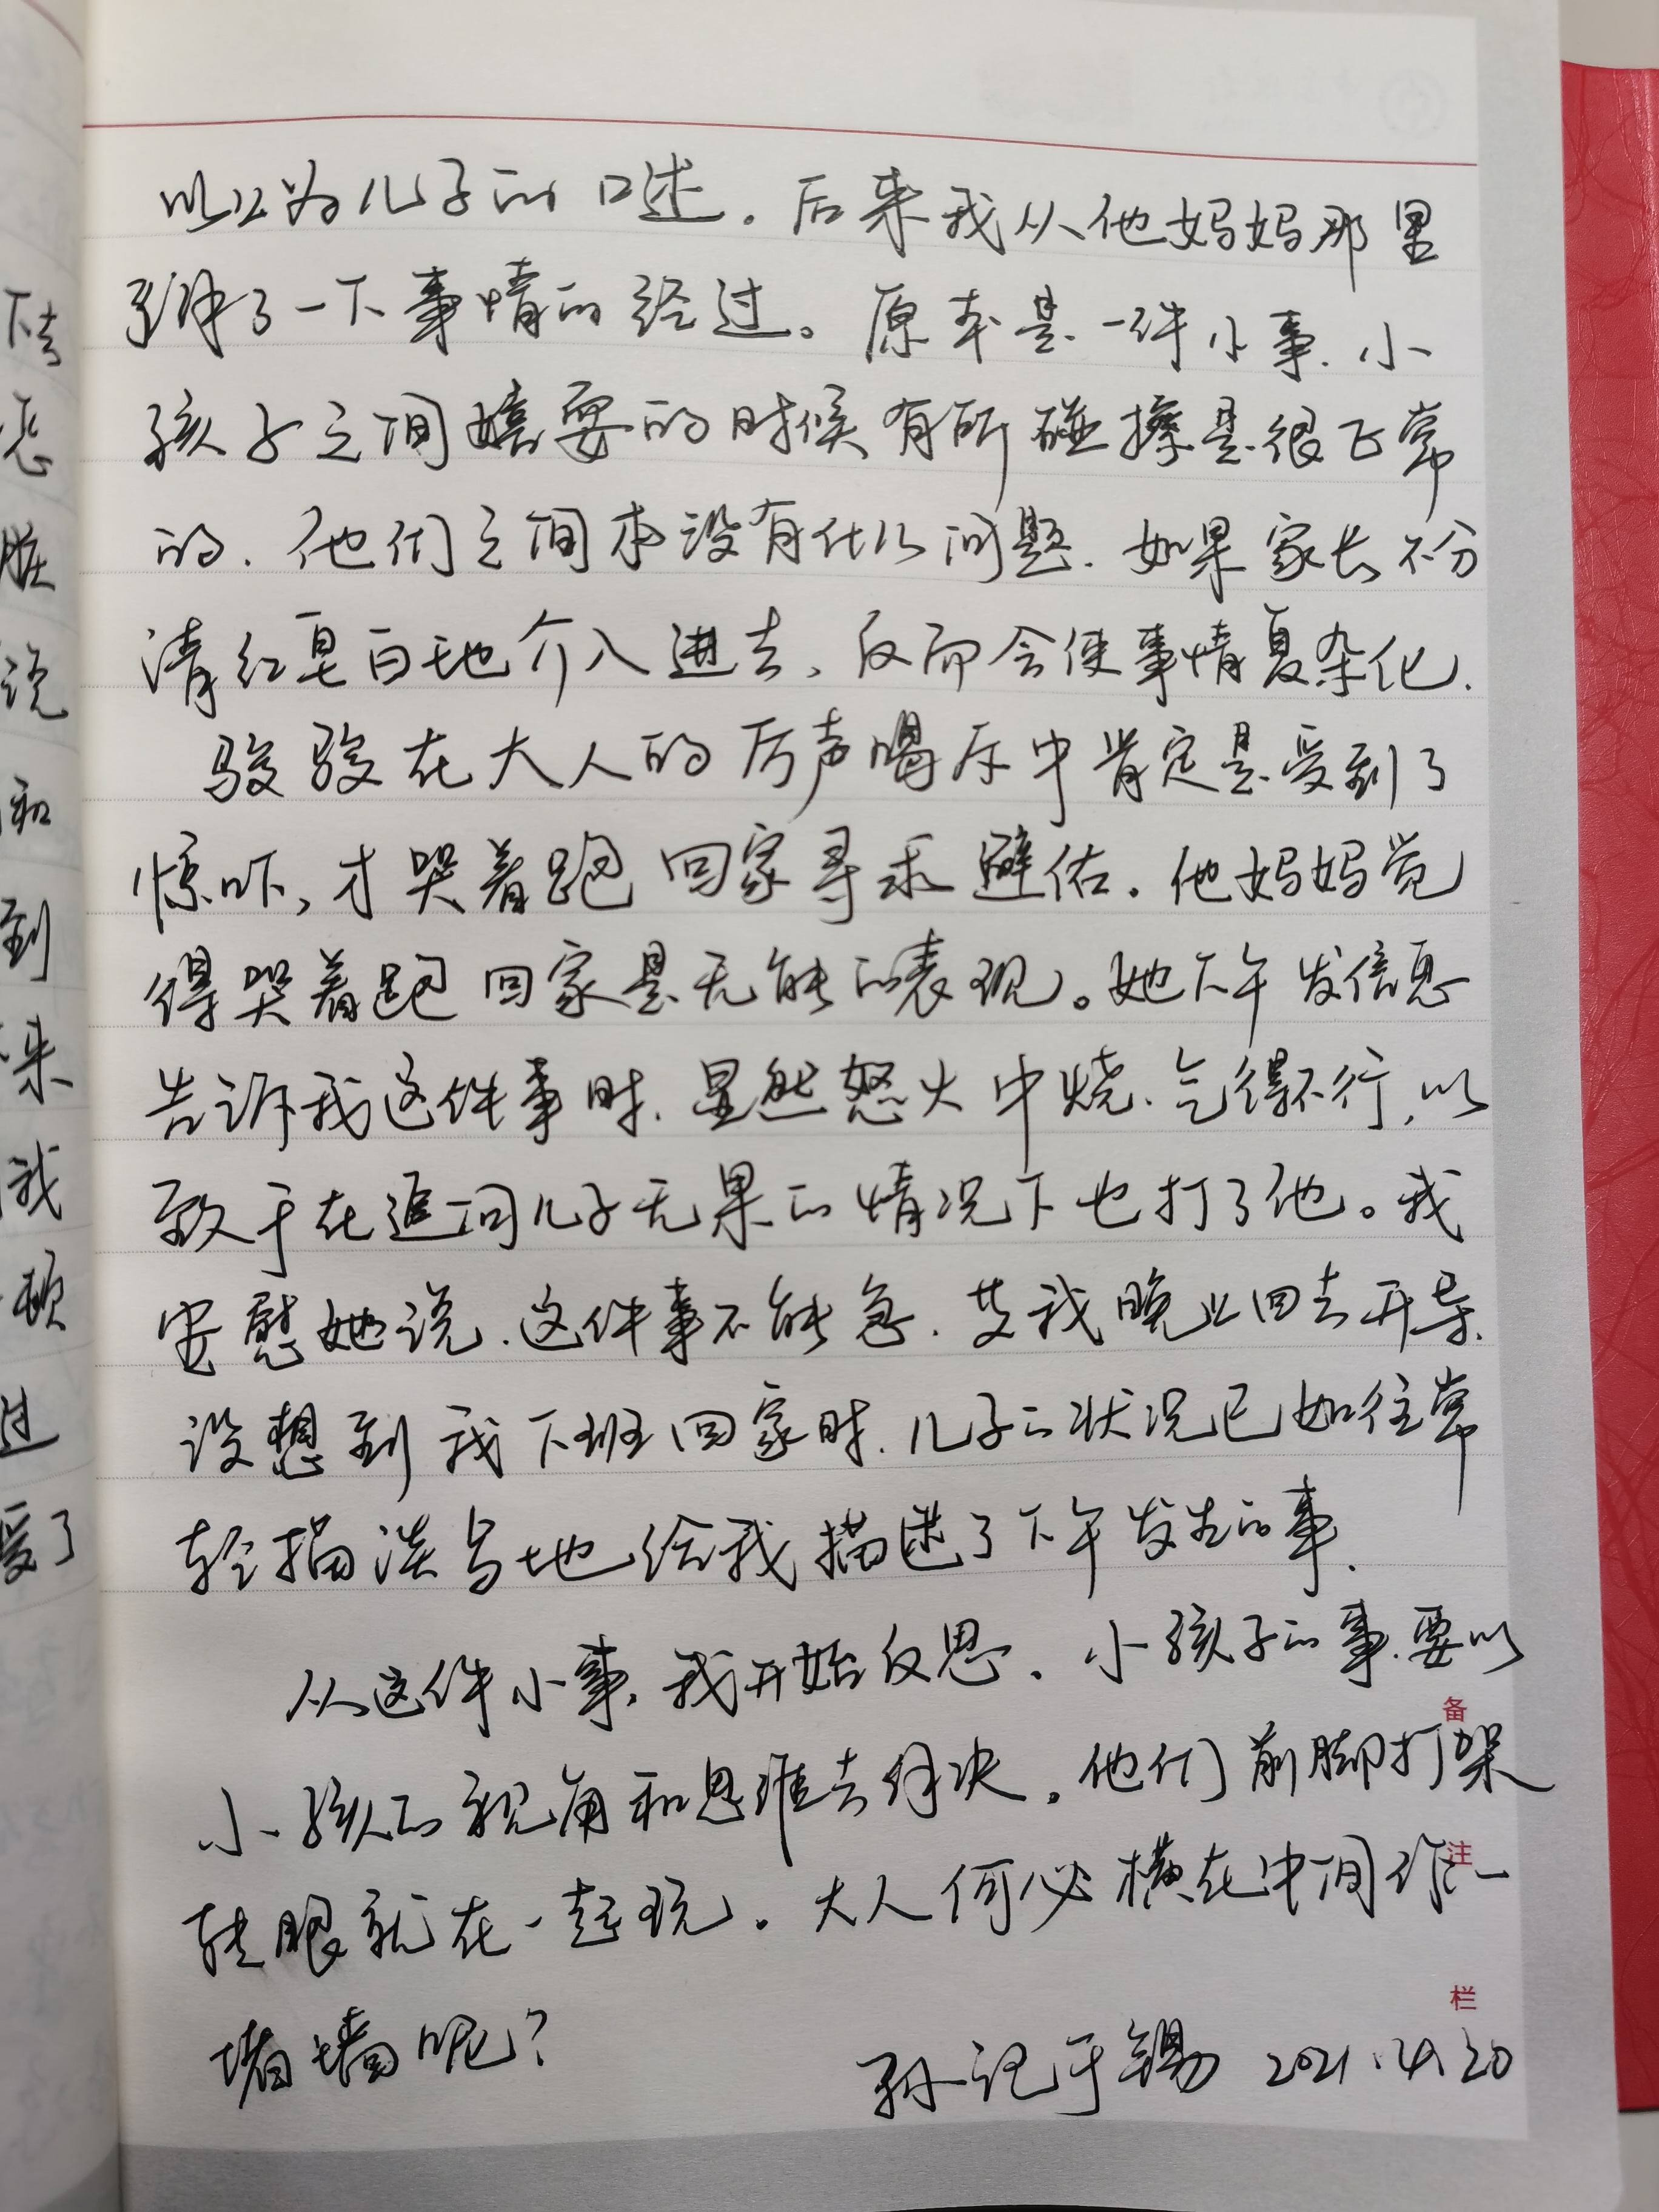 以上为儿子的口述。后来我从他妈妈那里
了解了一下事情的经过。原本是一件小事,小
孩子之间嬉耍的时候有所碰擦是很正常
的,他们之间本没有什么问题,如果家长不分
清红皂白地介入进去,反而会使事情复杂化.
骏骏在大人的厉声喝斥中肯定是受到了
惊吓,才哭着跑回家寻求避佑。他妈妈觉
得哭着跑回家是无能的表现。她下午发信息
告诉我这件事时,显然怒火中烧,气得不行,以
致于在追问儿子无果的情况下也打了他。我
安慰她说,这件事不能急,等我晚上回去开导.
没想到我下班回家时,儿子的状况已如往常
轻描淡写地给我描述了下午发生的事.
从这件小事,我开始反思,小孩子的事,要以
小孩的视角和思维去解决。他们前脚打架
转眼就在一起玩。大人何必横在中间作一
堵墙呢?
孙记于锡 2021.4.20
备
注
栏
下去
恶
脏
说
和
到
来
我
顿
过
受了